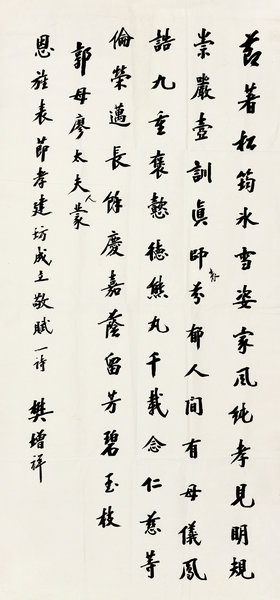 莭著松筠冰雪姿家風純孝見明規
崇嚴壼訓真師氏芬郁人間有母儀鳳
誥九重褒懿德熊丸千載念仁慈等
倫榮邁長餘慶嘉蔭留芳碧玉枝
郭母廖太夫人蒙
恩旌表節孝建坊成立敬賦一詩 樊增祥